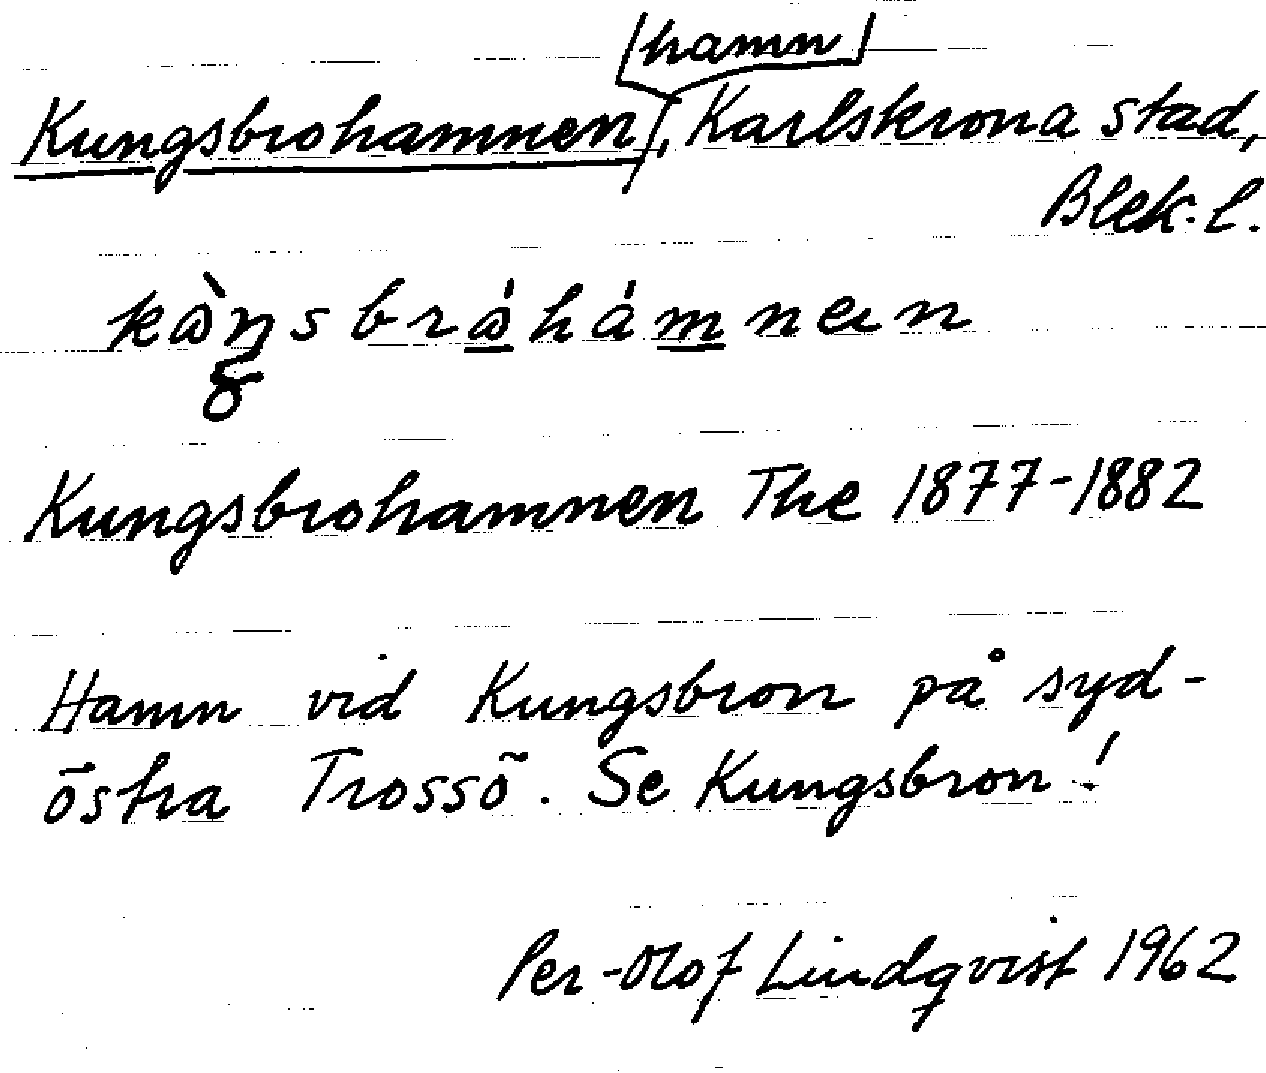 (hamn)
Kungsbrohamnen, Karlskrona stad,
Blek. l.
Kungsbrohamnen The 1877-1882
Hamn vid Kungsbron på syd-
östra Trossö. Se Kungsbron!
Per-Olof Lindqvist 1962